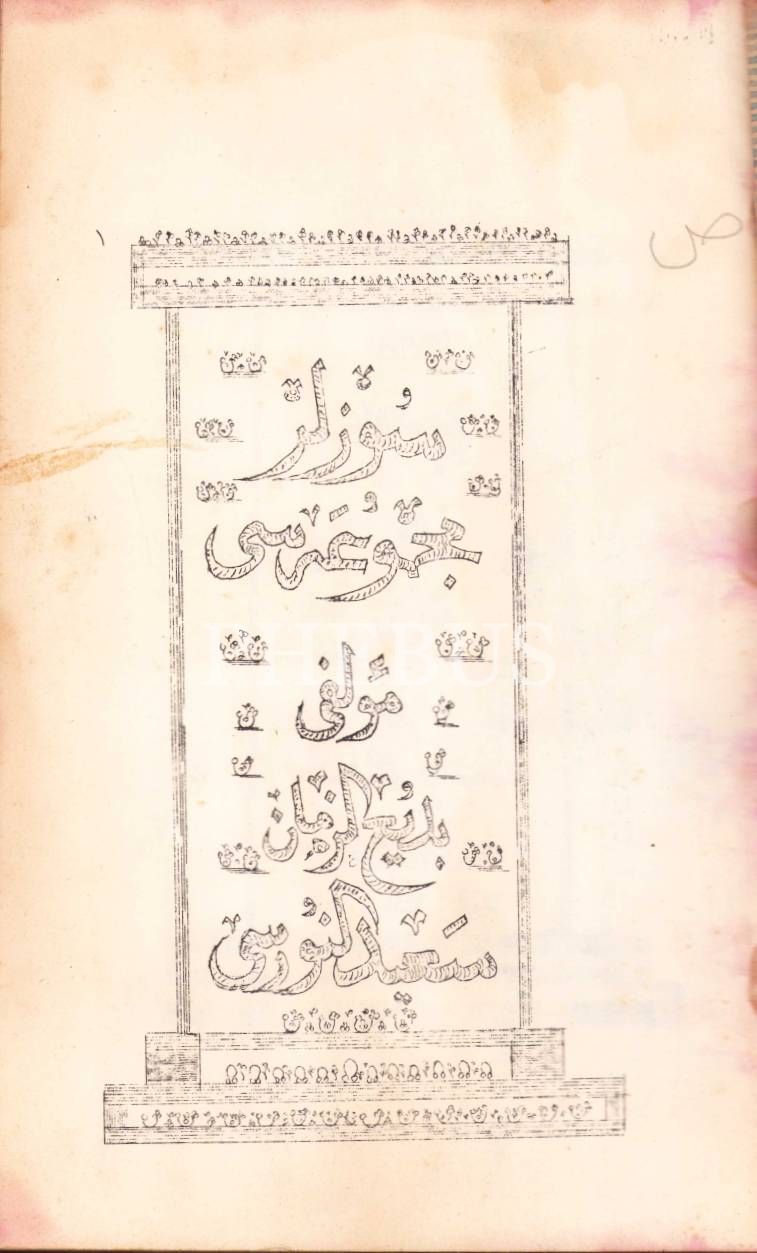 ص
١
سوزلر
مجموعه سی
مؤلفی
بديع الزمان
سعيد النورسی
PHEBUS